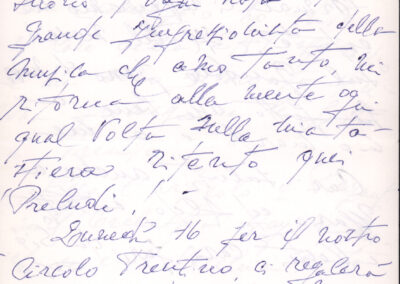 Grande Impressionista della
musica che amo tanto, mi
ritorna alla mente ogni
qual Volta sulla mia ta-
stiera ritento quei
Preludi!
Lunedì 16 per il nostro
Circolo Trentino, ci regalerà